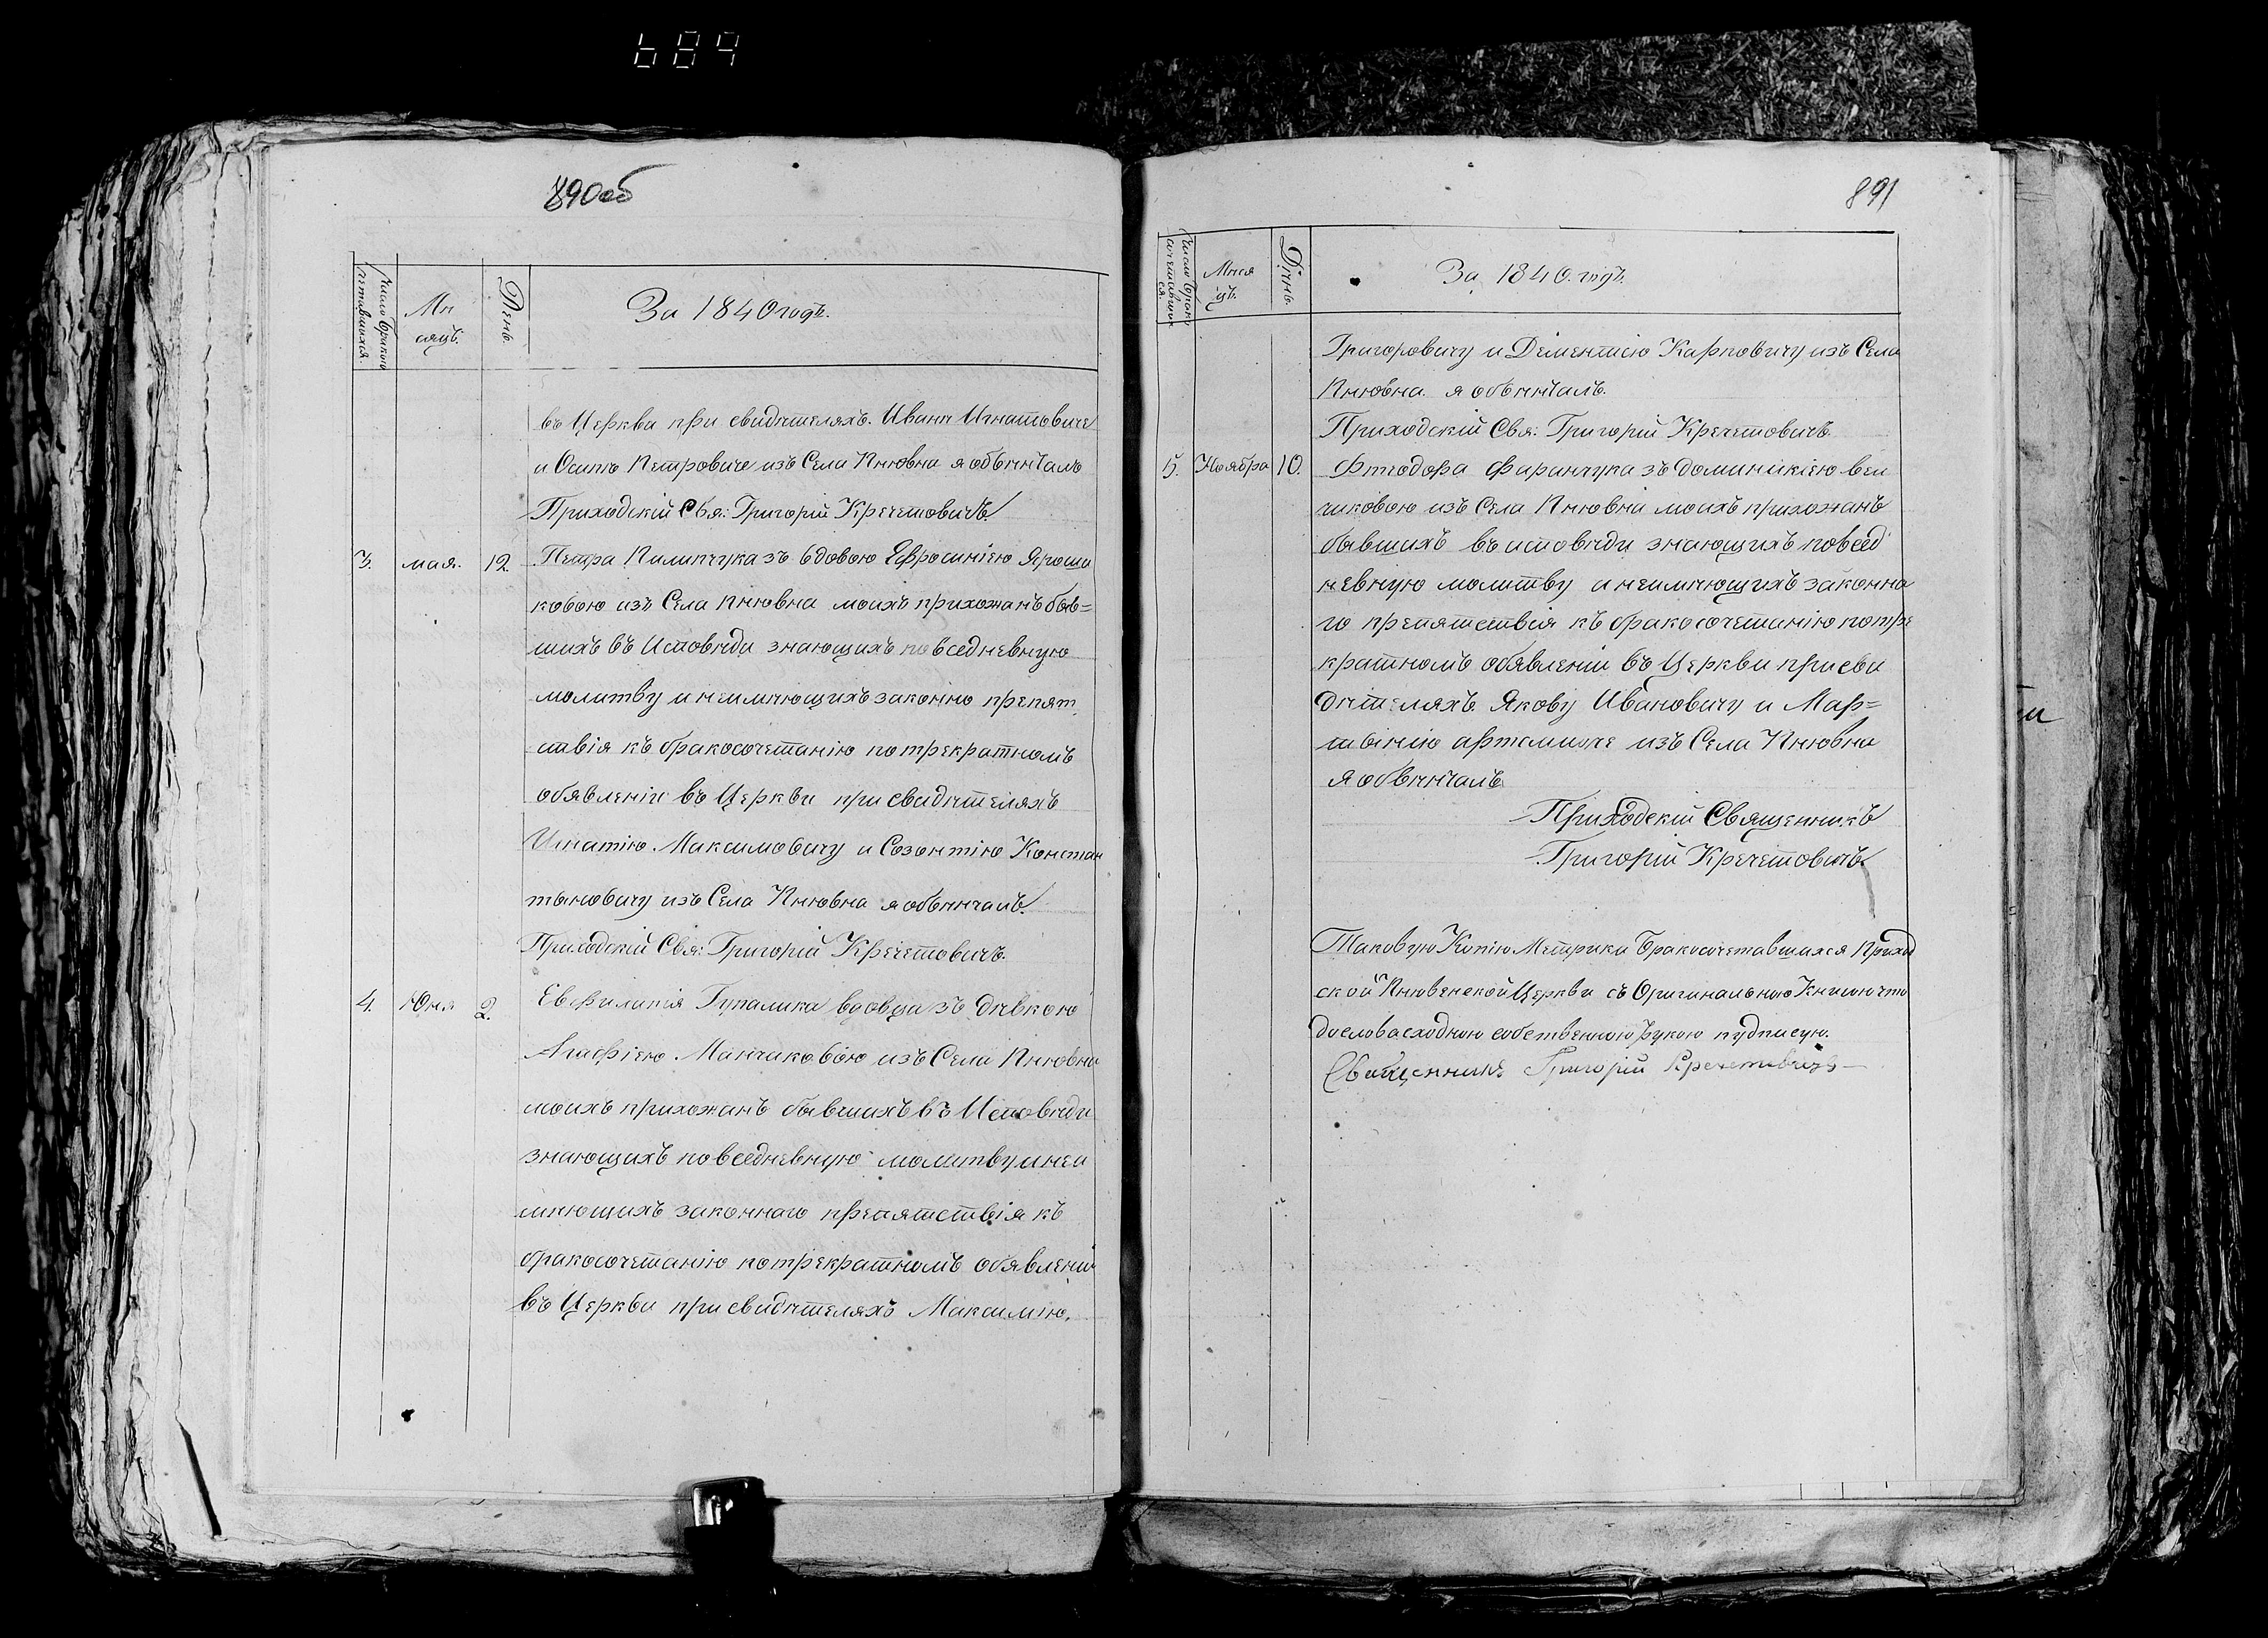 689
890об
Число бракосо
четавшихся.
Мѣ
сяцъ.
День.
За 1840 годъ.
въ Церкви при свидѣтеляхъ. Иванѣ Игнатовиче
и Осипѣ Петровиче изъ Села Пнювна я обвѣнчалъ
Приходскій Свя: Григорій Кречетовичъ.
3. мая. 12. Петра Пилипчука зъ вдовою Ефросинією Яроши
ковою изъ Села Пнювна моихъ прихожанъ быв=
шихъ въ Исповѣди знающихъ повседневную
молитву и неимѣющихъ законно препят
ствія къ бракосочетанію по трекратномъ
обявленіи въ Церкви при свидѣтеляхъ
Игнатію Максимовичу и Созонтію Констан
тыновичу изъ Села Пнювна я обвѣнчалъ.
Приходскій Свя: Григорій Кречетовичъ.
4. Юня 2. Евфилипія Гупалика вдовца зъ дѣвкою
Агафією Манчиковою изъ Села Пнювна
моихъ прихожанъ бывшихъ въ Исповѣди
знающихъ повседневную молитву и неи
мѣющихъ законнаго препятствія къ
бракосочетанію по трекратномъ обявленіи
въ Церкви при свидѣтеляхъ Максимію.
891
Число брако
сочетавших
ся.
Мѣся
цъ.
День.
За 1840. годъ.
Григоровичу и Дементію Карповичу изъ Села
Пнювна я обвѣнчалъ.
Приходскій Свя: Григорій Кречетовичъ
5. Ноября 10. Фтеодора Фаранчука зъ Доминикією вел
чиковою изъ Села Пнювна моихъ прихожанъ
бывшихъ въ исповѣди знающихъ повсед
невную молитву и неимѣющихъ законна
го препятствія къ бракосочетанію по тре
кратномъ обявленіи въ Церкви при сви
дѣтеляхъ Якову Ивановичу и Мар=
из Села Пнювна
я обвѣнчалъ
Приходскій Священникъ
Григорій Кречетовичъ.
Таковую Копію Метрики бракосочетавшихся Приход
ской Пнювенской Церкви съ Оригинальною Книгою что
дослова сходною собственною рукою пудписую.
Священникъ Григорій Кречетовичъ